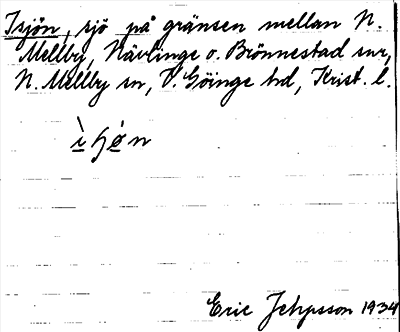 Isjön, sjö på gränsen mellan N.
Mellby, Nävlinge o. Brönnestad snr,
N. Mellby sn, V. Göinge hd, Krist. l.
Eric Jepsson 1934